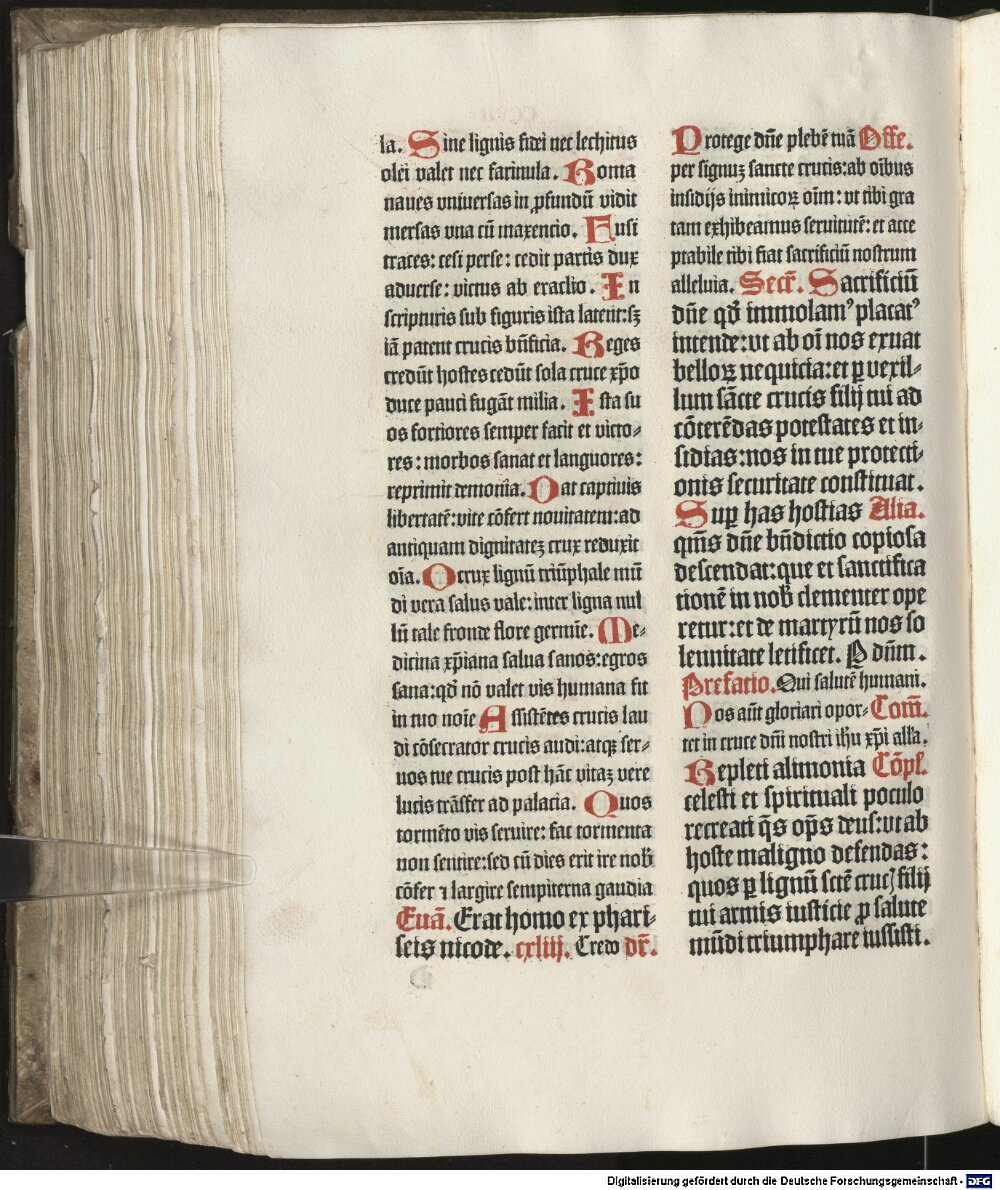 la. Sine lignis fidei nec lechitus
olei valet nec farinula. Roma
naues vniuersas in ꝓfundū vidit
mersas vna cū maxencio. Fusi
traces: cesi perse: cedit partis dux
aduerse: victus ab eraclio. In
scripturis sub figuris ista latent: sꝫ
iā patent crucis bn̄ficia. Reges
credūt hostes cedūt sola cruce xp̄o
duce pauci fugāt milia. Ista su
os fortiores semper facit et victo⸗
res: morbos sanat et languores:
reprimit demonia. Dat captiuis
libertatē: vite cōfert nouitatem: ad
antiquam dignitateꝫ crux reduxit
oīa. O crux lignū triūphale mū
di vera salus vale: inter ligna nul
lū tale fronde flore germīe. Me⸗
dicina xp̄iana salua sanos: egros
sana: qd̄ nō valet vis humana fit
in tuo noīe Assistētes crucis lau
di cōsecrator crucis audi: atqꝫ ser⸗
uos tue crucis post hāc vitaꝫ vere
lucis trāsfer ad palacia. Quos
tormēto vis seruire: fac tormenta
non sentire: sed cū dies erit ire nob̄
cōfer ⁊ largire sempiterna gaudia
Euā. Erat homo ex phari⸗
seis nicode. cxliij. Credo dr̄.
Protege dn̄e plebē tuā Offe.
per signuꝫ sancte crucis: ab oībus
insidijs inimicoꝝ oīm: vt tibi gra
tam exhibeamus seruitutē: et acce
ptabile tibi fiat sacrificiū nostrum
alleluia. Secr̄. Sacrificiū
dn̄e qd̄ immolamꝰ placatꝰ
intende: vt ab oī nos exuat
belloꝝ nequicia: et ꝑ vexil⸗
lum sācte crucis filij tui ad
cōterēdas potestates et in⸗
sidias: nos in tue protecti⸗
onis securitate constituat.
Suꝑ has hostias Alia.
qm̄s dn̄e bn̄dictio copiosa
descendat: que et sanctifica
tionē in nob̄ clementer ope
retur: et de martyrū nos so
lennitate letificet. P dn̄m.
Prefatio. Qui salutē humani.
Nos aūt gloriari opor⸗ Com̄.
tet in cruce dn̄i nostri ih̄u xp̄i all̄a.
Repleti alimonia Cōpl̄.
celesti et spirituali poculo
recreati q̄s op̄s deus: vt ab
hoste maligno defendas:
quos ꝑ lignū sctē crucꝭ filij
tui armis iusticie ꝓ salute
mūdi triumphare iussisti.
Digitalisierung gefördert durch die Deutsche Forschungsgemeinschaft - DFG